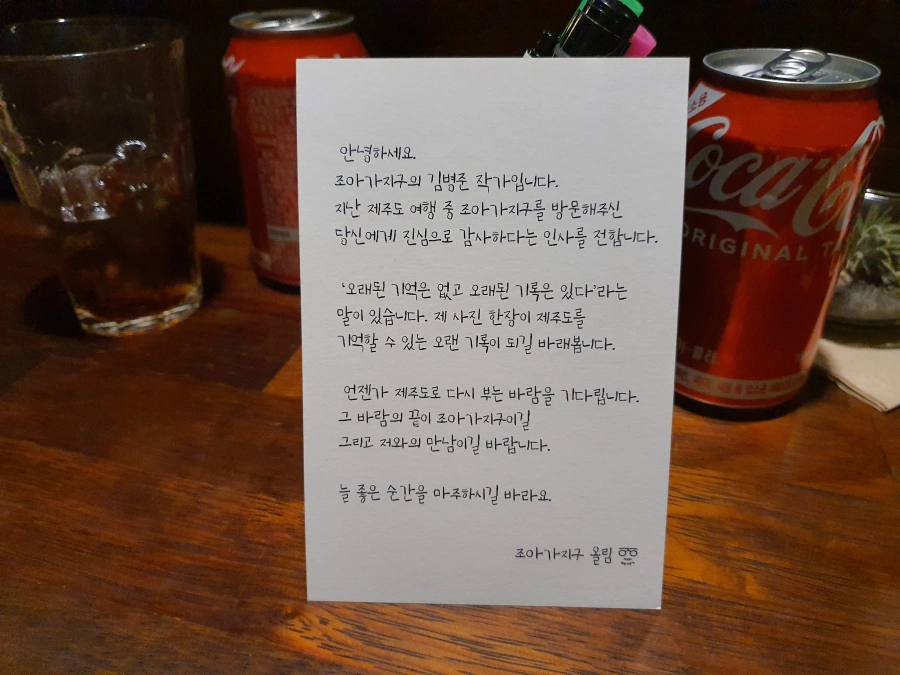 안녕하세요.
조아가지구의 김병준 작가입니다.
지난 제주도 여행 중 조아가지구를 방문해주신
당신에게 진심으로 감사하다는 인사를 전합니다.
‘오래된 기억은 없고 오래된 기록은 있다’라는
말이 있습니다. 제 사진 한장이 제주도를
기억할 수 있는 오랜 기록이 되길 바래봅니다.
언젠가 제주도로 다시 부는 바람을 기다립니다.
그 바람의 끝이 조아가지구이길
그리고 저와의 만남이길 바랍니다.
늘 좋은 순간을 마주하시길 바라요.
조아가지구 올림
Coca-Co
ORIGINAL TA